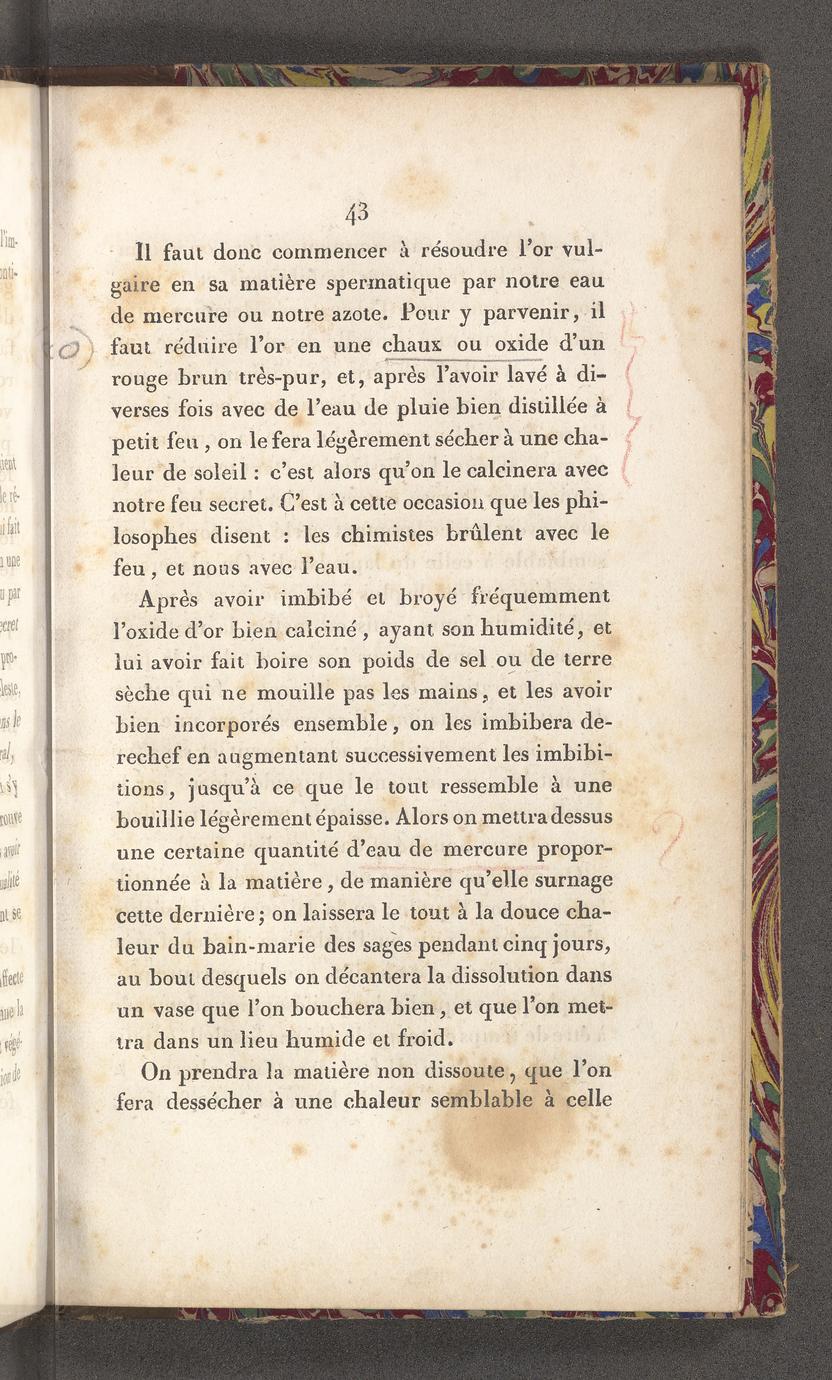 43
Il faut donc commencer à résoudre l'or vul-
gaire en sa matière spermatique par notre eau
de mercure ou notre azote. Pour y parvenir, il
faut réduire l'or en une chaux ou oxide d'un
rouge brun très-pur, et, après l'avoir lavé à di-
verses fois avec de l'eau de pluie bien distillée à
petit feu, on le fera légèrement sécher à une cha-
leur de soleil : c'est alors qu'on le calcinera avec
notre feu secret. C'est à cette occasion que les phi-
losophes disent : les chimistes brûlent avec le
feu, et nous avec l'eau.
Après avoir imbibé et broyé fréquemment
l'oxide d'or bien calciné, ayant son humidité, et
lui avoir fait boire son poids de sel ou de terre
sèche qui ne mouille pas les mains, et les avoir
bien incorporés ensemble, on les imbibera de-
rechef en augmentant successivement les imbibi-
tions, jusqu'à ce que le tout ressemble à une
bouillie légèrement épaisse. Alors on mettra dessus
une certaine quantité d'eau de mercure propor-
tionnée à la matière, de manière qu'elle surnage
cette dernière; on laissera le tout à la douce cha-
leur du bain-marie des sages pendant cinq jours,
au bout desquels on décantera la dissolution dans
un vase que l'on bouchera bien, et que l'on met-
tra dans un lieu humide et froid.
On prendra la matière non dissoute, que l'on
fera dessécher à une chaleur semblable à celle